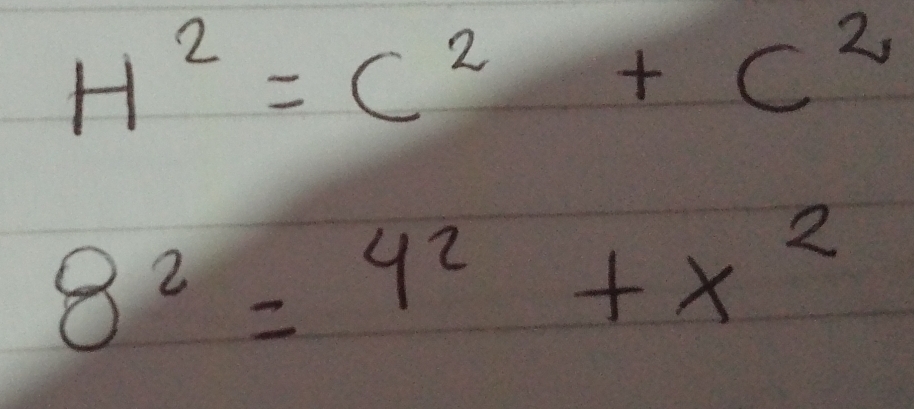 H² = C² + C²
8² = 4² + x²